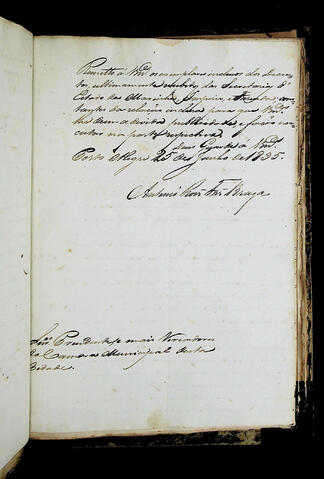 Remetto á Vm.ces os exemplares inclusos dos Decre-
tos, ultimamente recebidos das Secretarias d'
Estado da Marinha, Imperio, e cons-
tantes da relação inclusa para que Vm.ces
lhe dem a devida publicidade, e fação exe-
cutar na parte respectiva.
Deos Guarde á Vm.ces
Porto Alegre 25 de Junho de 1835.
Antonio Roiz Frz Braga
Snr.s Presidente, e mais Vereadores
da Camara Municipal desta
Cidade.